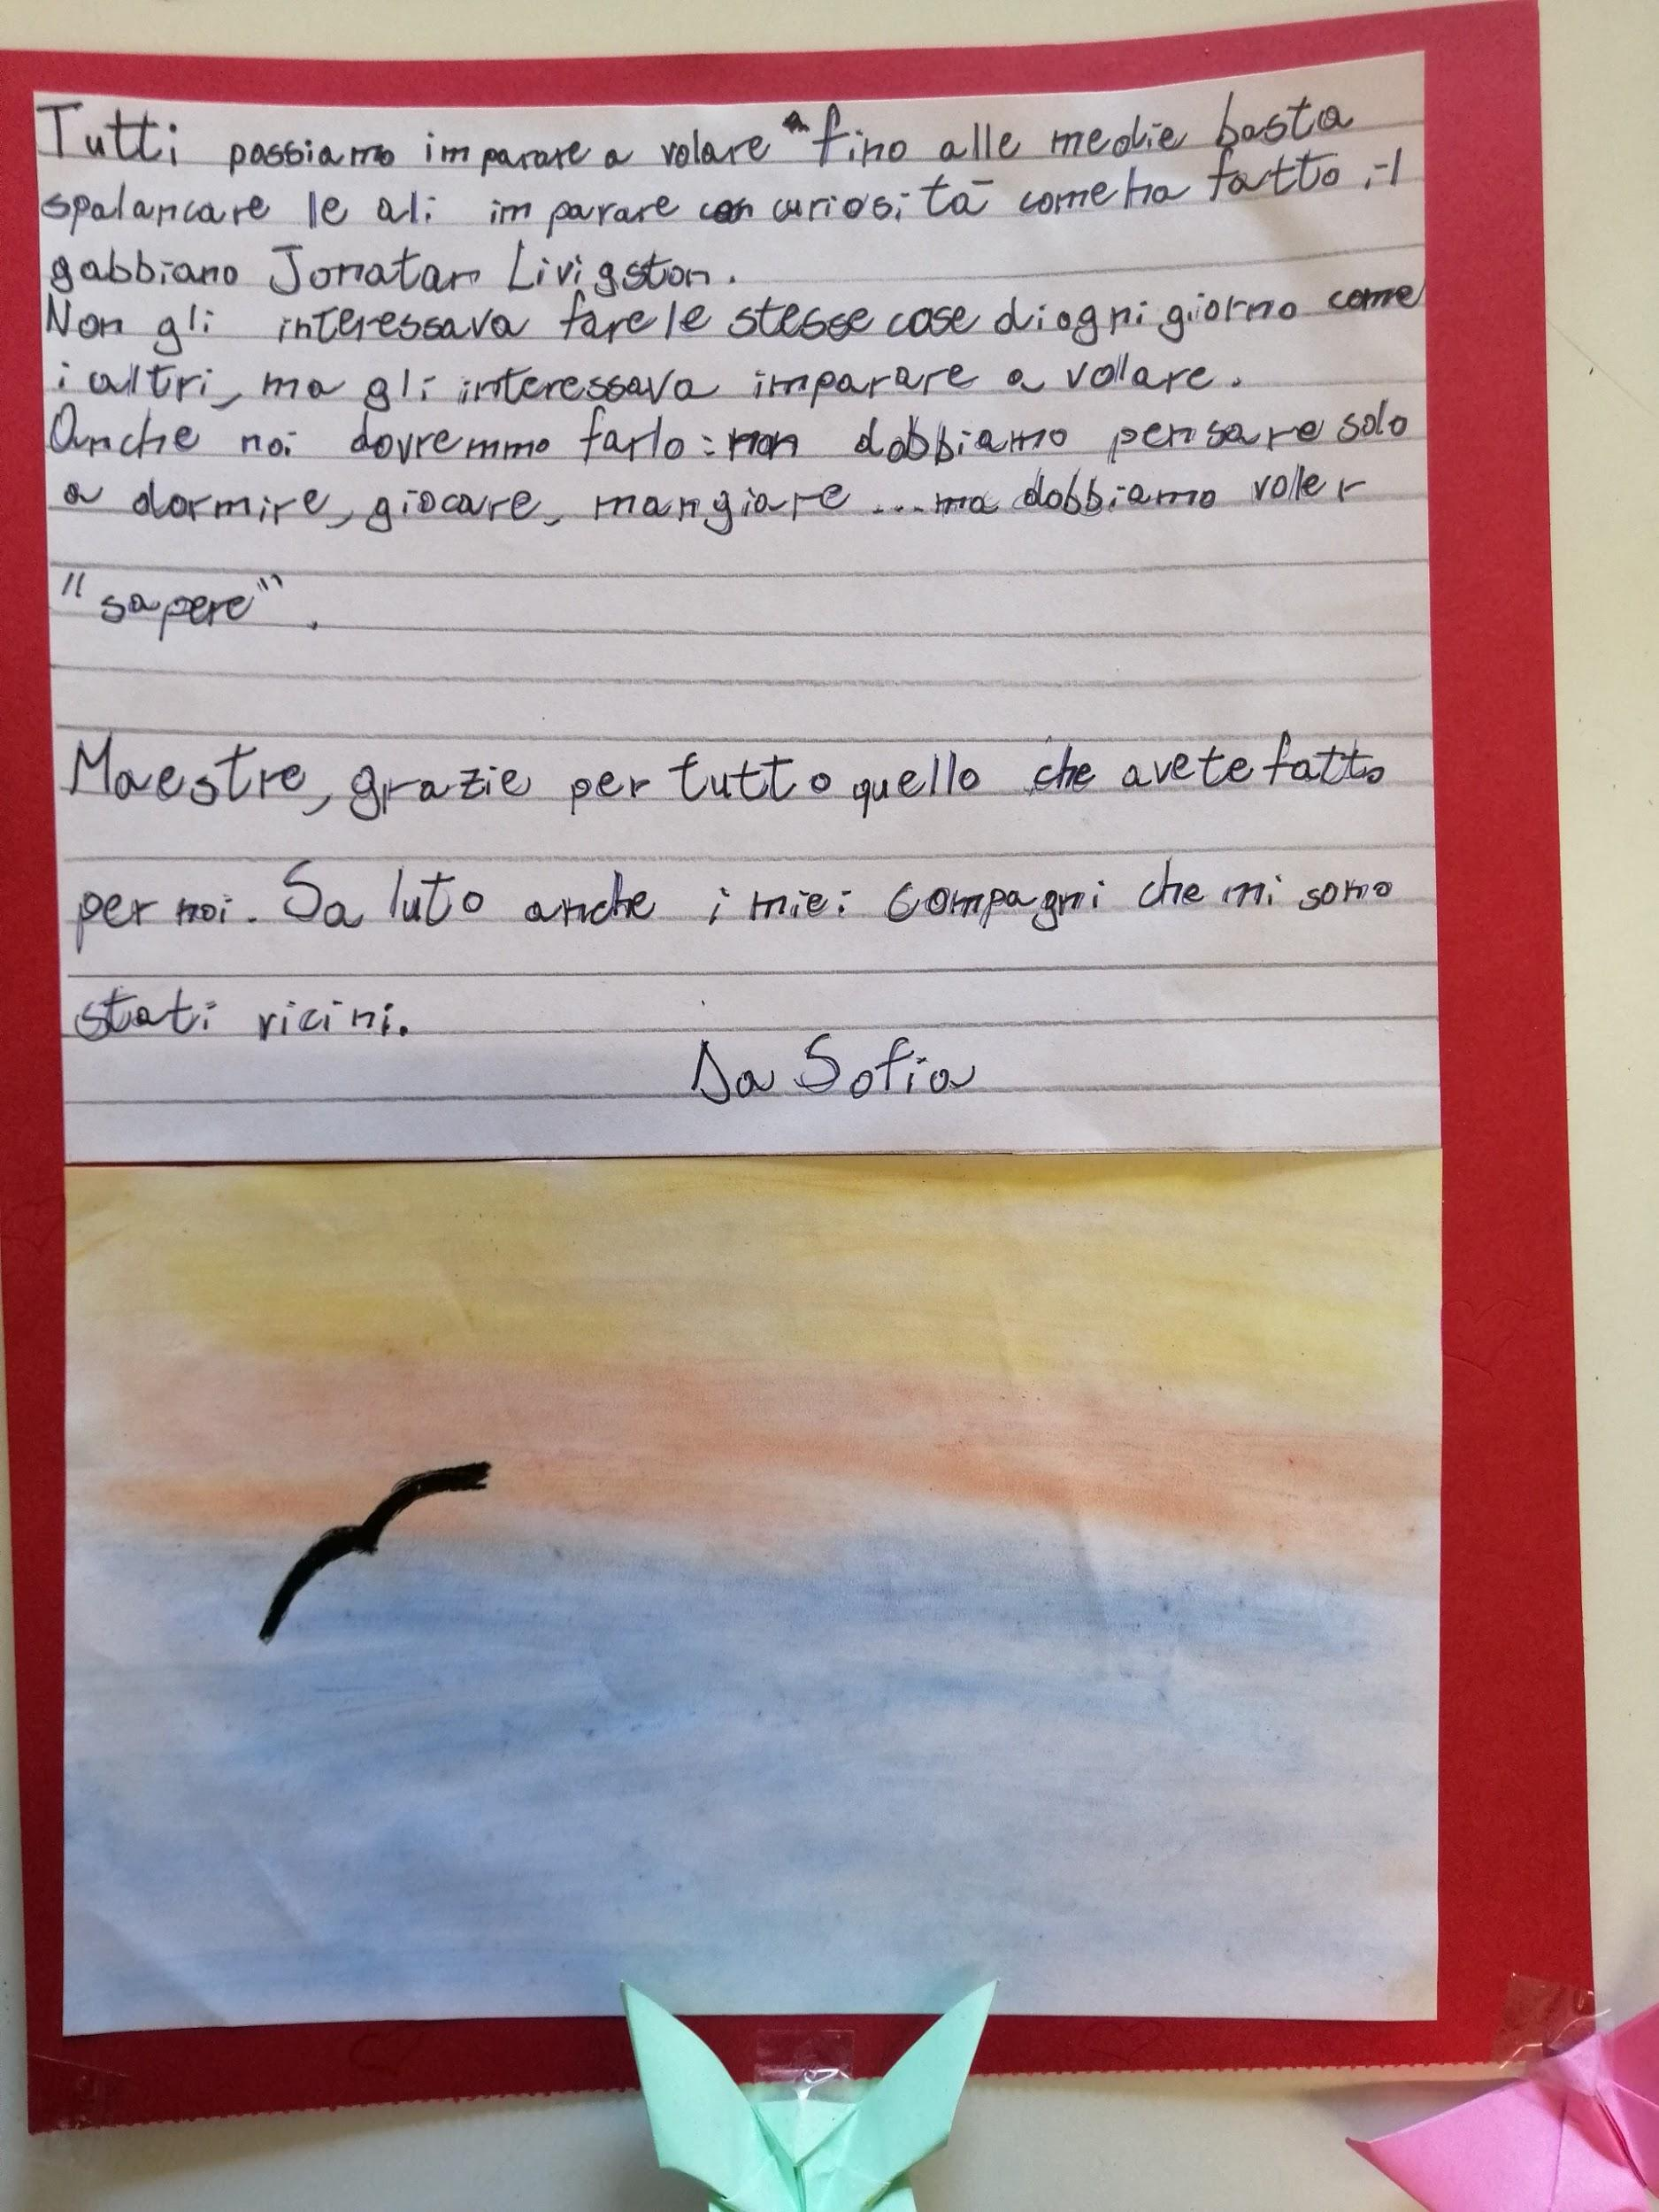 Tutti possiamo imparare a volare fino alle medie basta
spalancare le ali imparare con curiosità come ha fatto il
gabbiano Jonatan Livigston.
Non gli interessava fare le stesse cose di ogni giorno come
i altri, ma gli interessava imparare a volare.
Anche noi dovremmo farlo: non dobbiamo pensare solo
a dormire, giocare, mangiare ... ma dobbiamo voler
"sapere".
Maestre, grazie per tutto quello che avete fatto
per noi. Saluto anche i miei compagni che mi sono
stati vicini.
Da Sofia